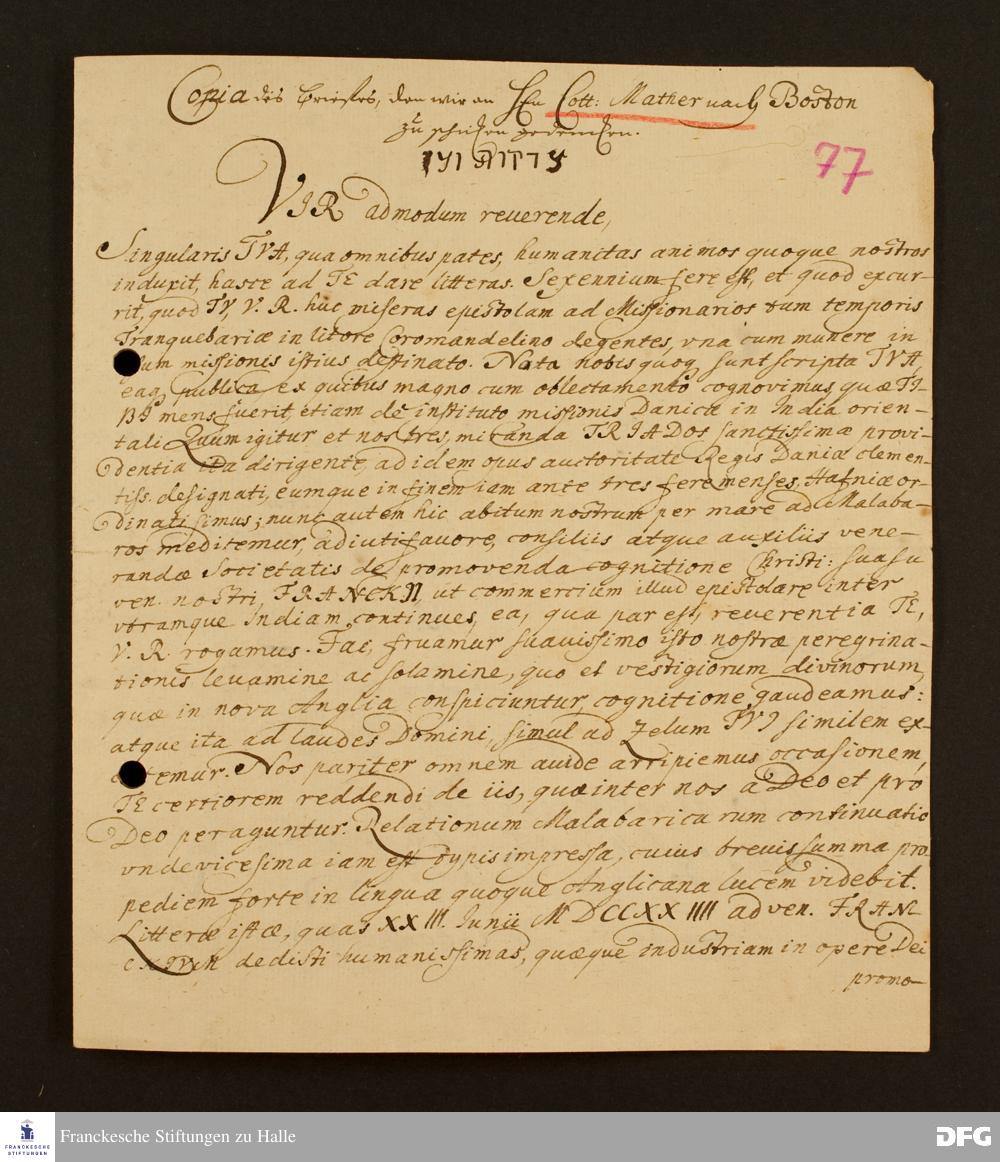 Copia des Briefes, den wir an Hn Cott: Mather nach Boston
zu schicken gedencken.
77
VIR admodum reuerende,
Singularis TVA, qua omnibus pates, humanitas animos quoque nostros
induxit, hasce ad TE dare litteras. Sexennium fere est, et quod excur-
rit, quod TV, V. R. huc miseras epistolam ad Missionarios tum temporis
Tranquebariæ in litore Coromandelino degentes, vna cum munere in
usum missionis istius destinato. Nota nobis quoq sunt scripta TVA,
eaq publica ex quibus magno cum oblectamento cognovimus, quæ TI-
BI mens fuerit etiam de instituto missionis Danicæ in India orien-
tali. Quum igitur et nos tres, miranda TRIADOS sanctissimæ provi-
dentia ita dirigente, ad idem opus auctoritate Regis Daniæ clemen-
tiss. designati, eumque in finem iam ante tres fere menses, Hafniæ or-
dinati simus; nunc autem hic abitum nostrum per mare ad Malaba-
ros meditemur, adiuti favore, consiliis atque auxiliis vene-
randæ Societatis de promovenda cognitione Christi: suasu
ven. nostri FRANCKII, ut commercium illud epistolare inter
vtramque Indiam continues, ea, qua par est, reverentia TE,
V. R. rogamus. Fac, fruamur suavissimo isto nostræ peregrina-
tionis levamine ac solamine, quo et vestigiorum divinorum,
quæ in nova Anglia conspiciuntur, cognitione gaudeamus:
atque ita ad laudes Domini, simul ad zelum TVI similem ex-
citemur. Nos pariter omnem avide arripiemus occasionem,
TE certiorem reddendi de iis, quæ inter nos a Deo et pro
Deo peraguntur. Relationum Malabaricarum continuatio
vndevicesima iam est typis impressa, cuius brevis summa pro-
pediem forte in lingua quoque Anglicana lucem videbit.
Litteræ istæ, quas XXIII. Iunii MDCCXXIIII ad ven. FRAN-
dedisti humanissimas, quæque industriam in opere Dei
promo-
FRANCKESCHE
STIFTUNGEN
Franckesche Stiftungen zu Halle
DFG